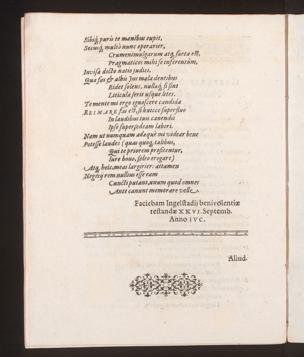 Eihiq́; puris te manibus cupit,
Secuq́; multò nunc operarier,
Crumenimulgarum atq; fœta est,
Pragmaticos mihi se inferentûm,
Invisa docto natio judici.
Qua fas & albis Jus mala dentibus
Ridet solens, nullaq́; si sint
Liticula serit usque lites.
Te mente mi ergo ignoscere candida
REIMARE fas est, si hucce superfluo
In laudibus tuis canendis
Ipse supersedeam labori.
Nam ut nunquam adaque mi videar bene
Potesse laudes (quas quoq; talibus,
Qui te priorem prosientur,
Iure bono, solvo erogare)
Atq; heic, meas largirier: attamen
Negoq́; rem nullius esse eam
Cuncti putant, unum quod omnes
Ante canunt memorare velle.
Faciebam Ingelstadij benivolentiæ
testandæ XXVI. Septemb.
Anno IVC.
Aliud.